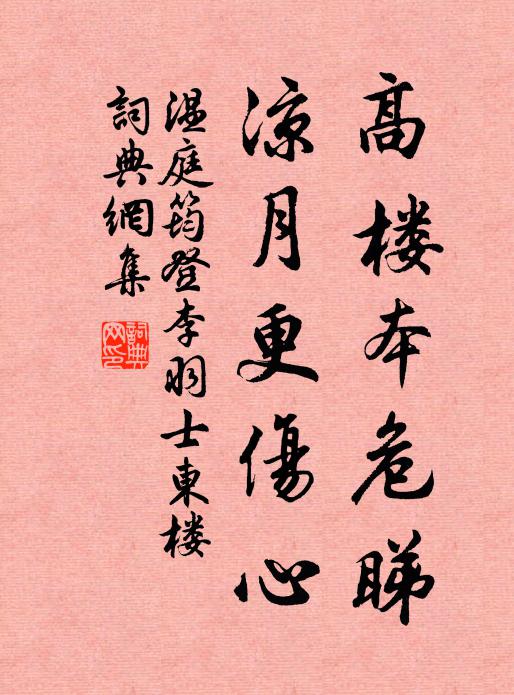 高楼本危睇
凉月更傷心
温庭筠登李羽士東楼
詞典網集
詞典网印